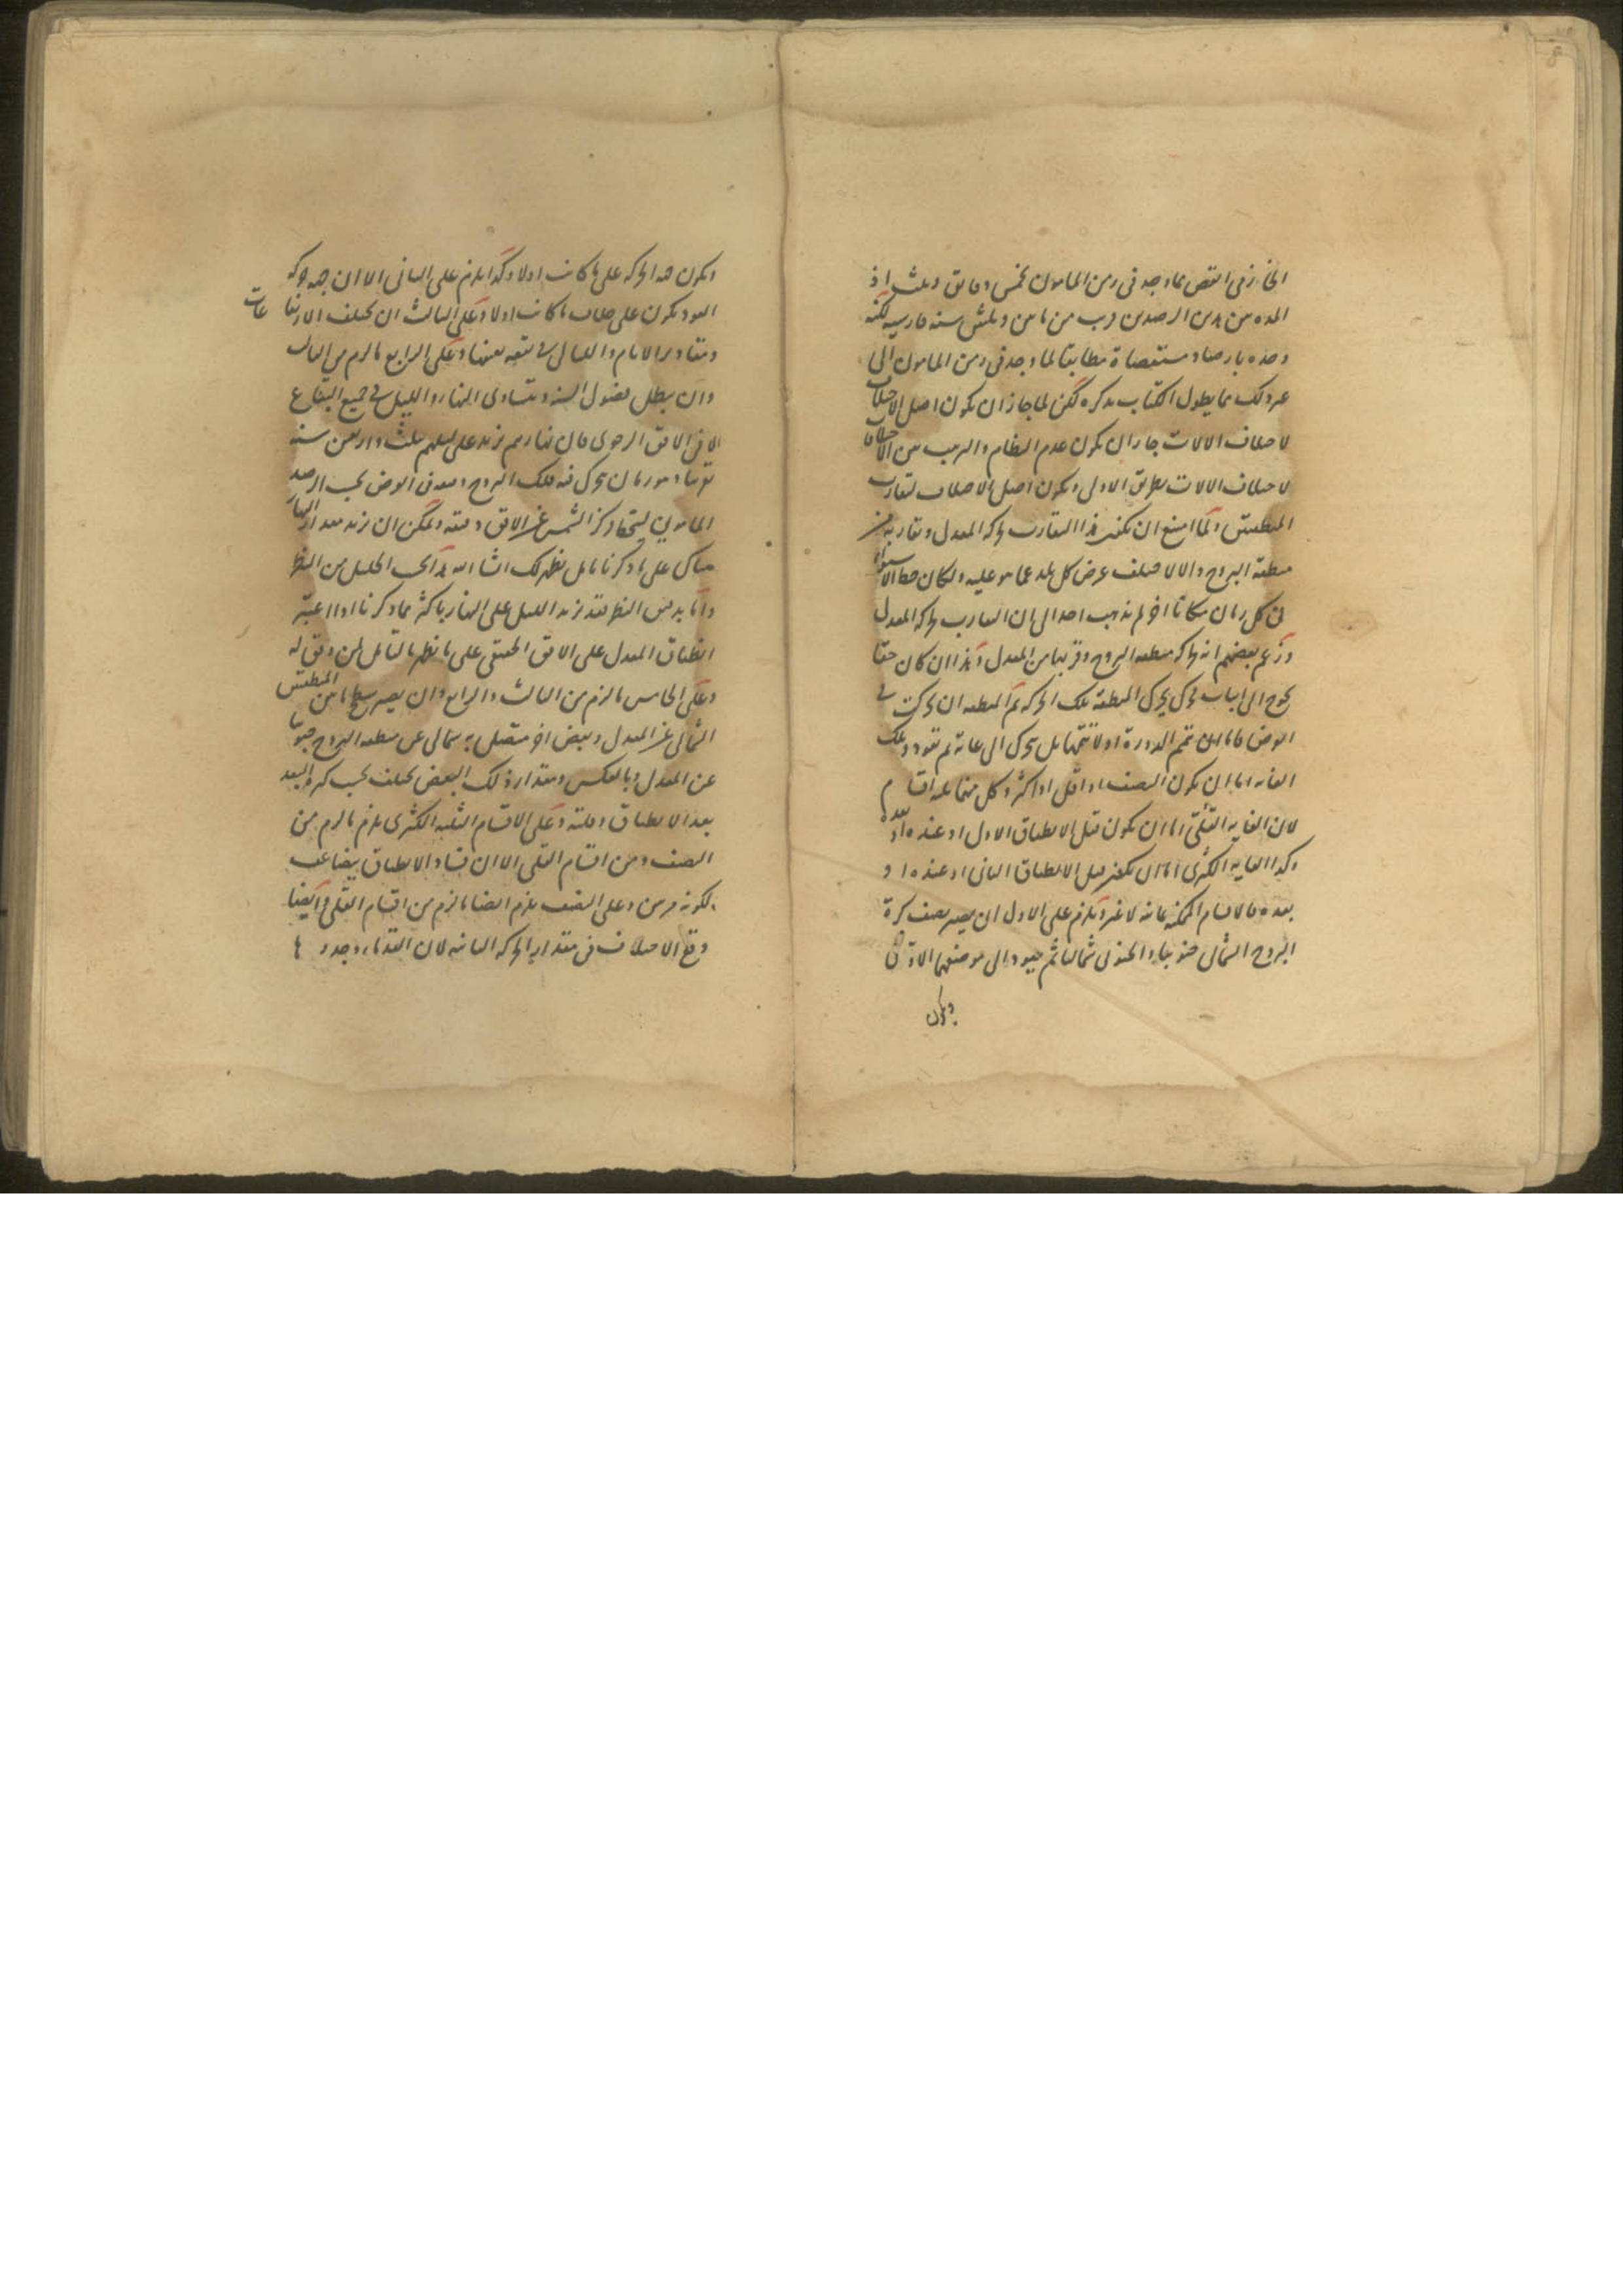 الخازنى انقص مما وجد فى زمن المامون بخمس دقايق وثلث اذ
المده بين الرصدين قريب من مائتين وثلثين سنه فارسيه لكنه
وجده بارصاد مستقصاة مطابقا لما وجد فى زمن المامون الى
غير ذلك مما يطول الكتاب بذكره لكن لما جاز ان يكون اصل الاختلاف
لاختلاف الالات جاز ان يكون عدم النظام والترتيب من الاختلافات
لاختلاف الالات بطريق الاولى ويكون اصل الاختلاف لتقارب
المنطقتين ولما امتنع ان يكون هذا التقارب لحركه المعدل وتقاربه من
منطقه البروج والا لاختلف عرض كل بلد عما هو عليه ولكان خط الاستواء
فى كل زمان مكانا اخر لم يذهب احد الى ان التقارب لحركه المعدل
وزعم بعضهم انه لحركه منطقه البروج وقربها من المعدل وهذا ان كان حقا
يحوج الى اثبات محرك يحرك المنطقه تلك الحركه ثم المنطقه ان تحركت فى
العرض فاما ان تتم الدورة او لا تتمها بل تتحرك الى غاية ثم تعود وتلك
الغايه اما ان يكون النصف او اقل او اكثر وكل منهما ثلثه اقسام
لان الغايه القلى اما ان يكون قبل الانطباق الاول او عنده او بعده
وكذا الغايه الكثرى اما ان يكون قبل الانطباق الثانى او عنده او
بعده فالاقسام الممكنه ثمانيه لا غير ويلزم على الاول ان يصير نصف كرة
البروج الشمالى جنوبيا والجنوبى شماليا ثم يعود الى موضعهما الاول
ويكون
ويكون هذه الحركه على ما كانت اولا وكذا يلزم على الثانى الا ان جهه حركه
العود يكون على خلاف ما كانت اولا وعلى الثالث ان يختلف الارتفاعات
ومقادير الايام والليالى فى بقعه بعينها وعلى الرابع ما لزم من الثالث
وان يبطل فصول السنه ويتساوى النهار والليل فى جميع البقاع
الا فى الافق الرحوى فان نهارهم يزيد على ليلهم بثلث واربعين سنه
تقريبا وهو زمان تحرك فيه فلك البروج دقيقه فى العرض بحسب الرصد
المامونى ليتجاوز مركز الشمس عن الافق دقيقه ويمكن ان يزيد مقدار النهار
هناك على ما ذكرنا بتامل يظهر لك ان شاء الله هذا بحسب الجليل من النظر
واما بدقيق النظر فقد يزيد الليل على النهار باكثر مما ذكرنا اذا اعتبر
انطباق المعدل على الافق الحقيقى على ما يظهر بالتامل لمن وفق له
وعلى الخامس ما لزم من الثالث والرابع وان يصير سطح ما بين المنطقتين
الشمالى عن المعدل وبعض اخر متصل به شمالى عن منطقه البروج جنوبيا
عن المعدل وبالعكس ومقدار ذلك البعض يختلف بحسب كثره البعد
بعد الانطباق وقلته وعلى الاقسام الثلثه الكثرى يلزم ما لزم من
النصف ومن اقسام القلى الا ان فساد الانطباق يتضاعف
لكونه مرتين وعلى النصف يلزم ايضا ما لزم من اقسام القلى وايضا
وقع الاختلاف فى مقدار الحركه الثانيه لان القدماء وجدوها